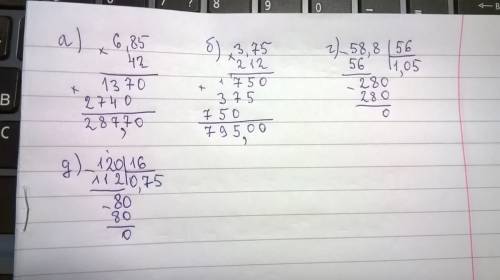 а) × 6,85
42
+ 1370
2740
287,70
б) × 3,75
212
+ 750
375
750
795,00
г) - 58,8 | 56
56 | 1,05
- 280
280
0
д) - 120 | 16
112 | 0,75
- 80
80
0